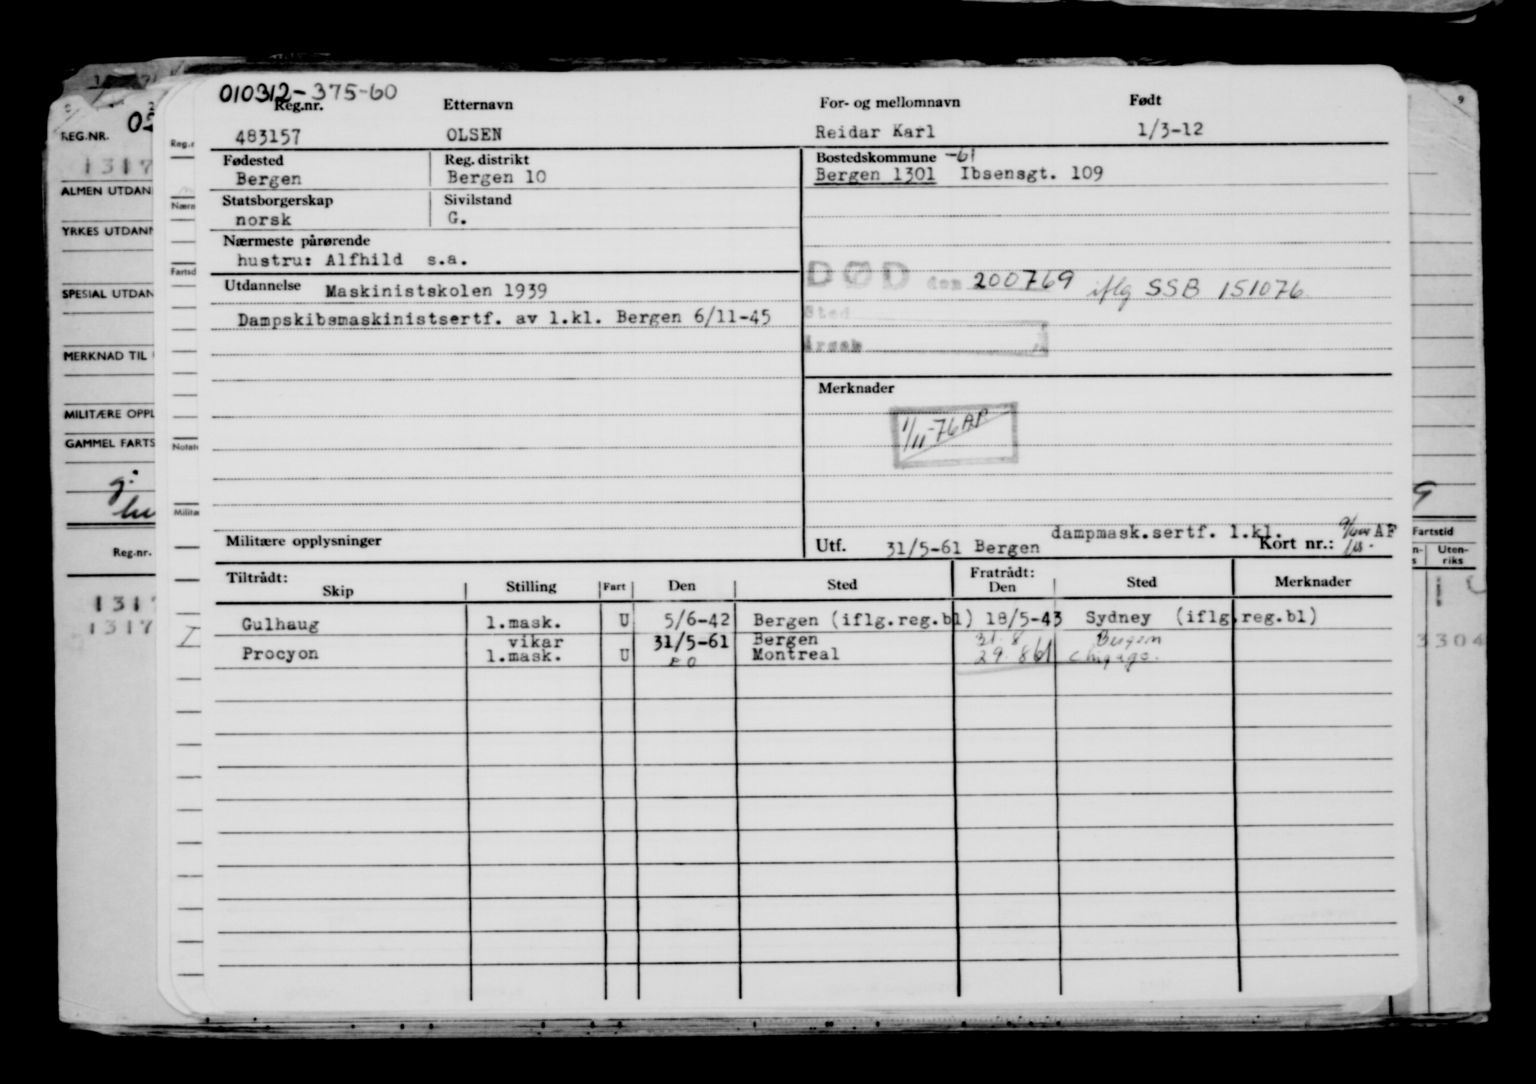 010312-375-60
Reg.nr. Etternavn For- og mellomnavn Født
483157 OLSEN Reidar Karl 1/3-12
Fødested Reg. distrikt Bostedskommune -61
Bergen Bergen 10 Bergen 1301 Ibsensgt. 109
Statsborgerskap Sivilstand
norsk G.
Nærmeste pårørende
hustru: Alfhild s.a.
Utdannelse Maskinistskolen 1939
Dampskibsmaskinistsertf. av 1.kl. Bergen 6/11-45
DØD den 200769 iflg SSB 151076
Sted
Årsak
Merknader
1/11-76 AP
Militære opplysninger
Utf. 31/5-61 Bergen dampmask.sertf. 1.kl.
Kort nr.: AF
Tiltrådt: Fratrådt:
Skip Stilling Fart Den Sted Den Sted Merknader
Gulhaug 1.mask. U 5/6-42 Bergen (iflg.reg.bl) 18/5-43 Sydney (iflg.reg.bl)
vikar 31/5-61 Bergen 31.8 Bergen
Procyon 1.mask. U Montreal 29.861 Chigago.
REG.NR. 05
1317
ALMEN UTDAN
YRKES UTDANN
SPESIAL UTDAN
MERKNAD TIL
MILITÆRE OPPL
GAMMEL FARTS
Reg.nr.
1317
1317
Reg.
Nærm
Fartsd
Notate
Militæ
9
Fartstid
Uten-
riks
3304